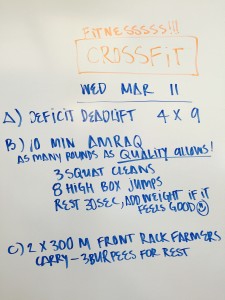 FITNESSSSS!!!
CROSSFIT
WED MAR 11
A) DEFICIT DEADLIFT 4 X 9
B) 10 MIN AMRAQ
AS MANY ROUNDS AS QUALITY ALLOWS!
3 SQUAT CLEANS
8 HIGH BOX JUMPS
REST 30SEC, ADD WEIGHT IF IT
FEELS GOOD
C) 2 X 300 M FRONT RACK FARMERS
CARRY - 3 BURPEES FOR REST